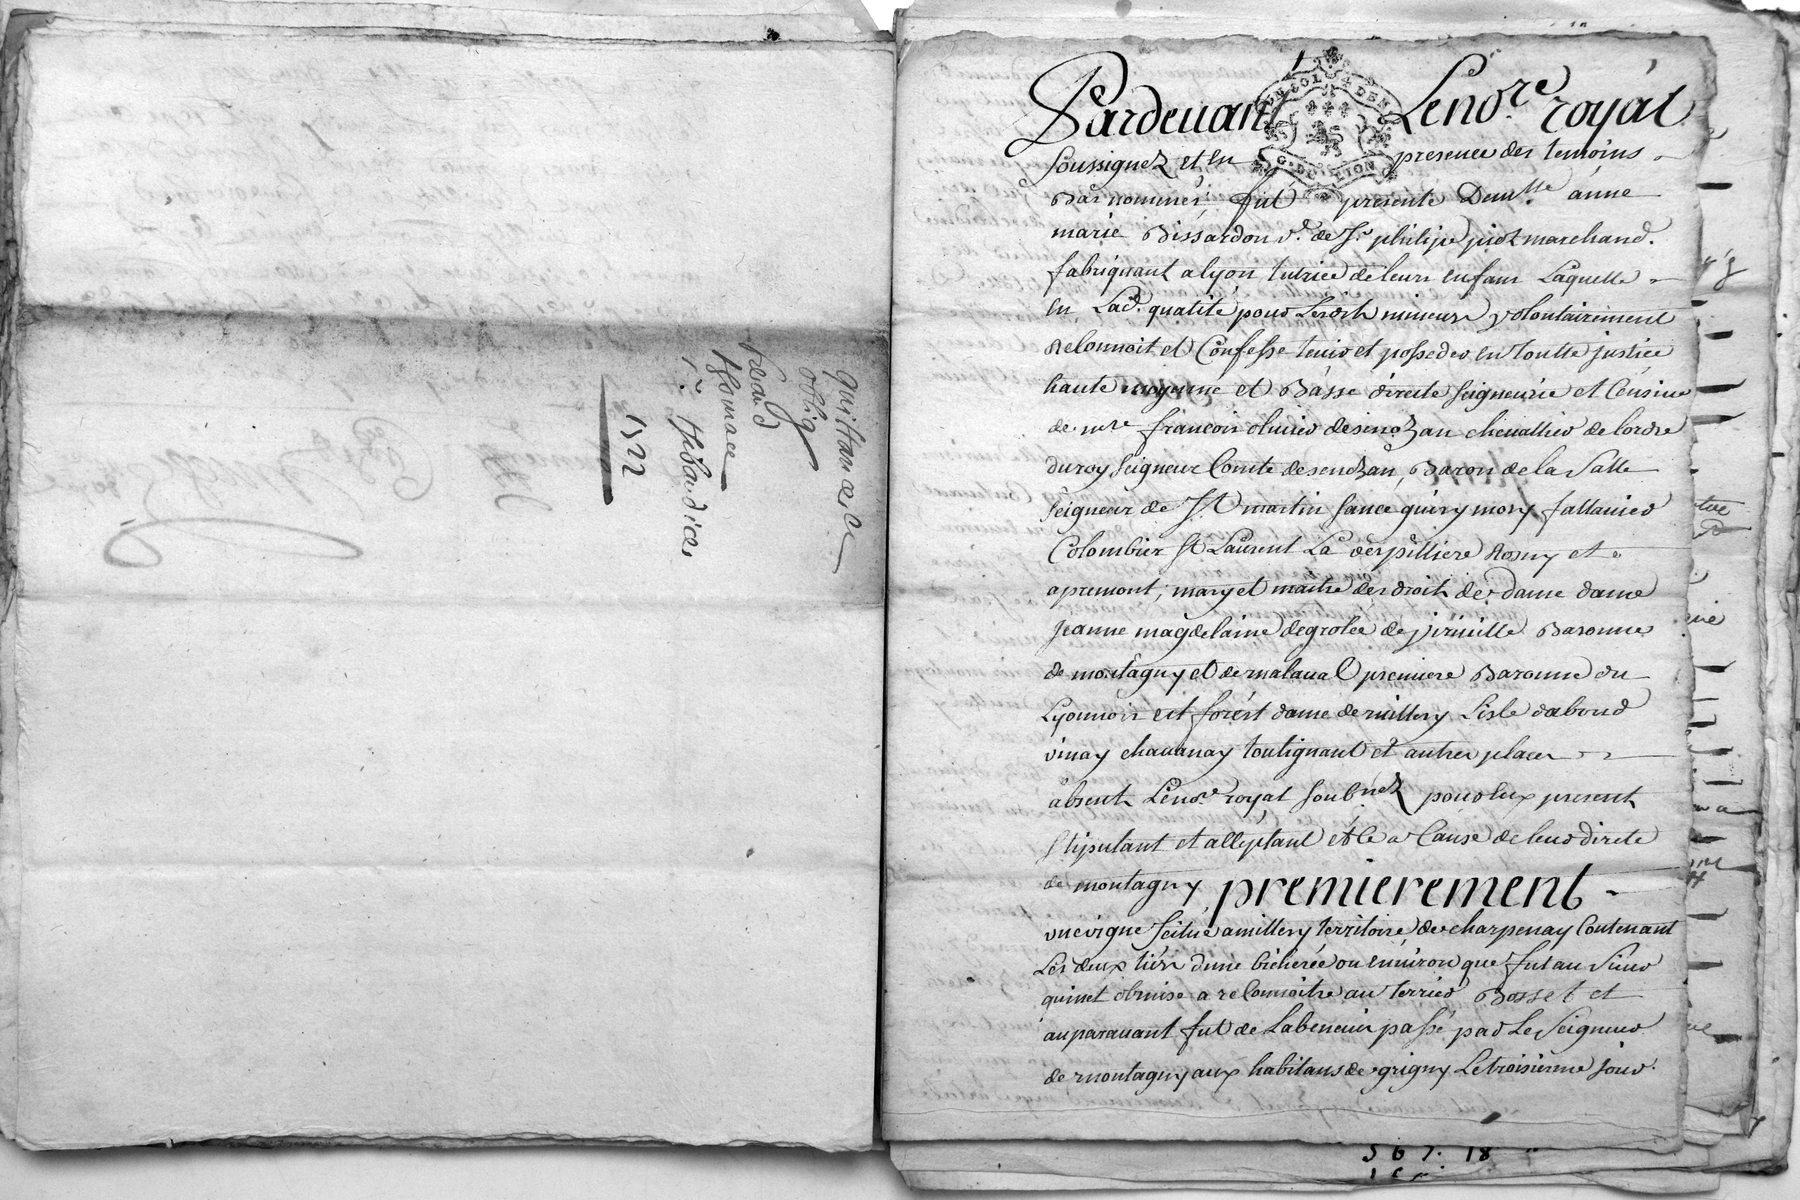 quittance
oblig
1722
Pardeuant Le nore royal
soussignez et en presence des temoins
Bas nommés fut presente Demlle anne
marie Bissardon ve. de Sr philipe piot marchand
fabriquant a lyon tutrice de leurs enfans Laquelle
en Lad. qualité pour Lesdits mineurs volontairement
Reconnoit et Confesse tenir et posseder en toutte justice
haute moyenne et Basse directe seigneurie et Censive
de mre françois oliuier de senozan cheuallier de lordre
du roy seigneur Comte de senozan, Baron de la Salle
seigneur de St martin fallauier
Colombier St Laurent La verpilliere Rosny et
apremont, mary et maitre des droits de dame dame
jeanne magdelaine de grolée de viriuille Baronne
de montagny et de malaual premiere Baronne du
Lyonnois et forest dame de millery Lisle dabeau
vinay chauanay toulignant et autres places
absents Le nore royal soubnez pour eux present
stipulant et acceptant et ce a Cause de leur directe
de montagny premierement
une vigne scitué a millery territoire de charpenay Contenant
Les deux tiers dune bicherée ou enuiron que fut au Sieur
quinet obmise a reconnoitre au terrier Bosset et
auparauant fut de Labeneuis passé par Le seigneur
de montagny aux habitans de grigny Le troisieme jour
5 6 7. 18